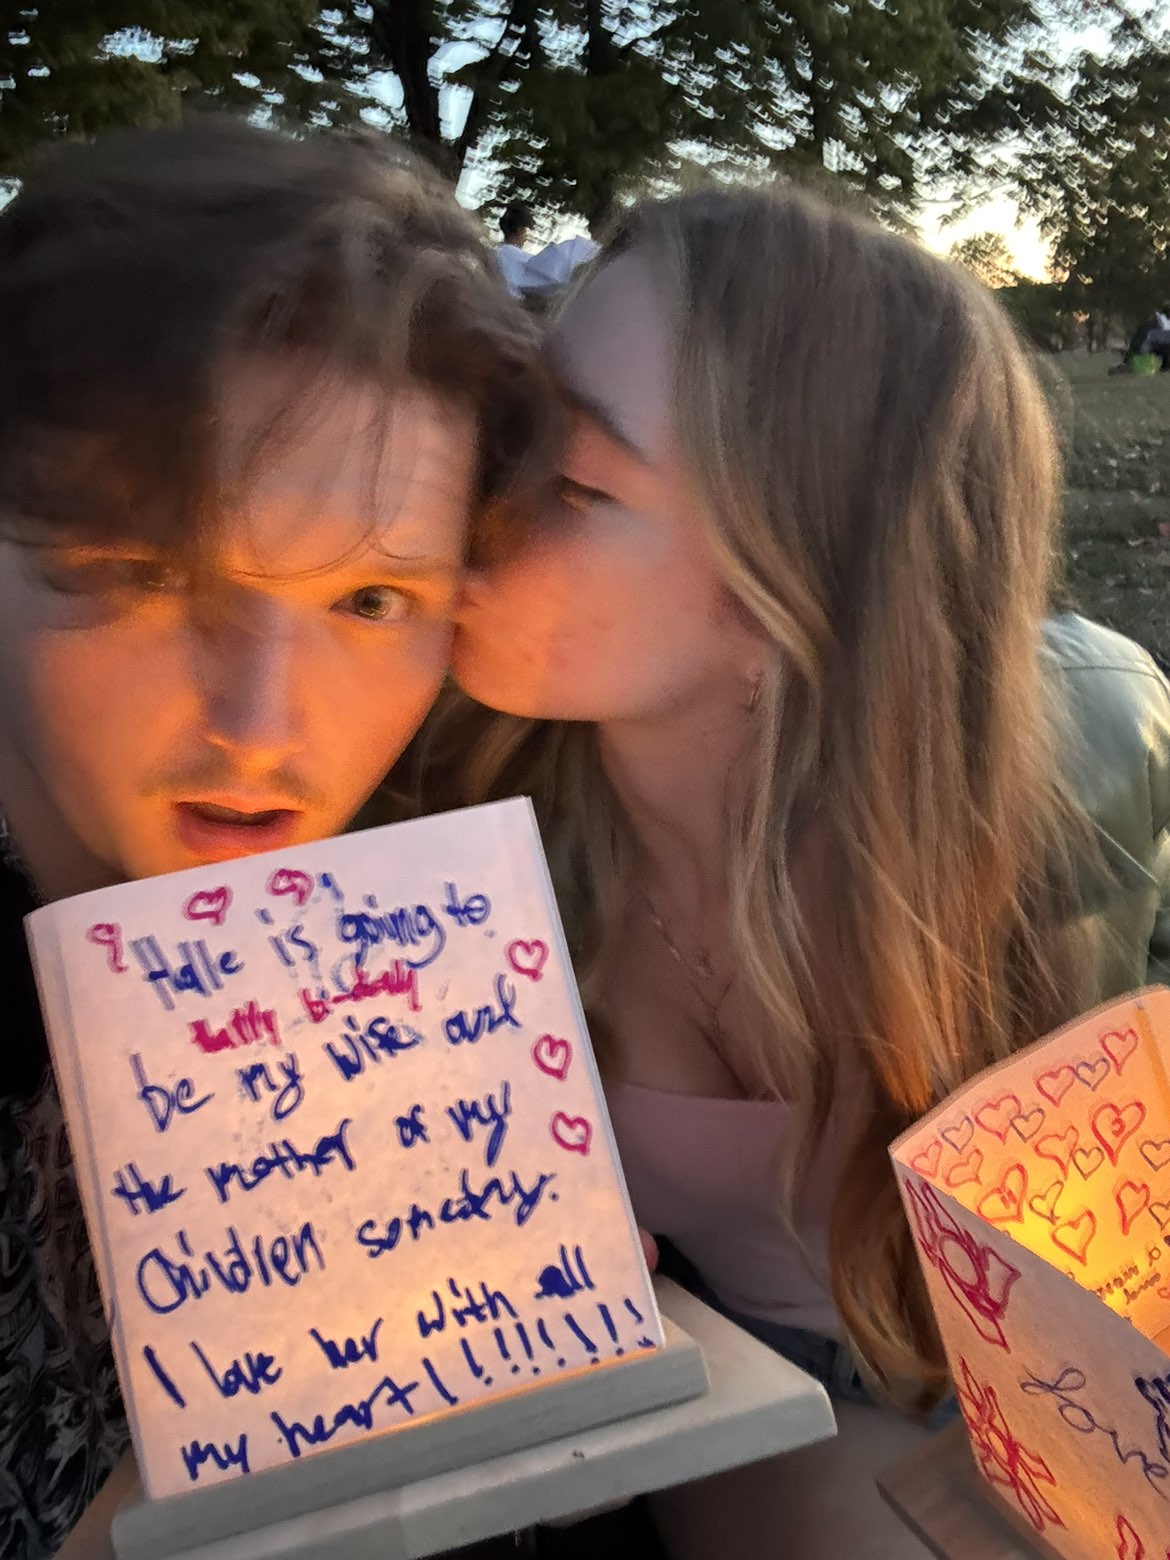 Halle is going to
be my wife and
the mother of my
Children someday.
I love her with all
my heart!!!!!!!!